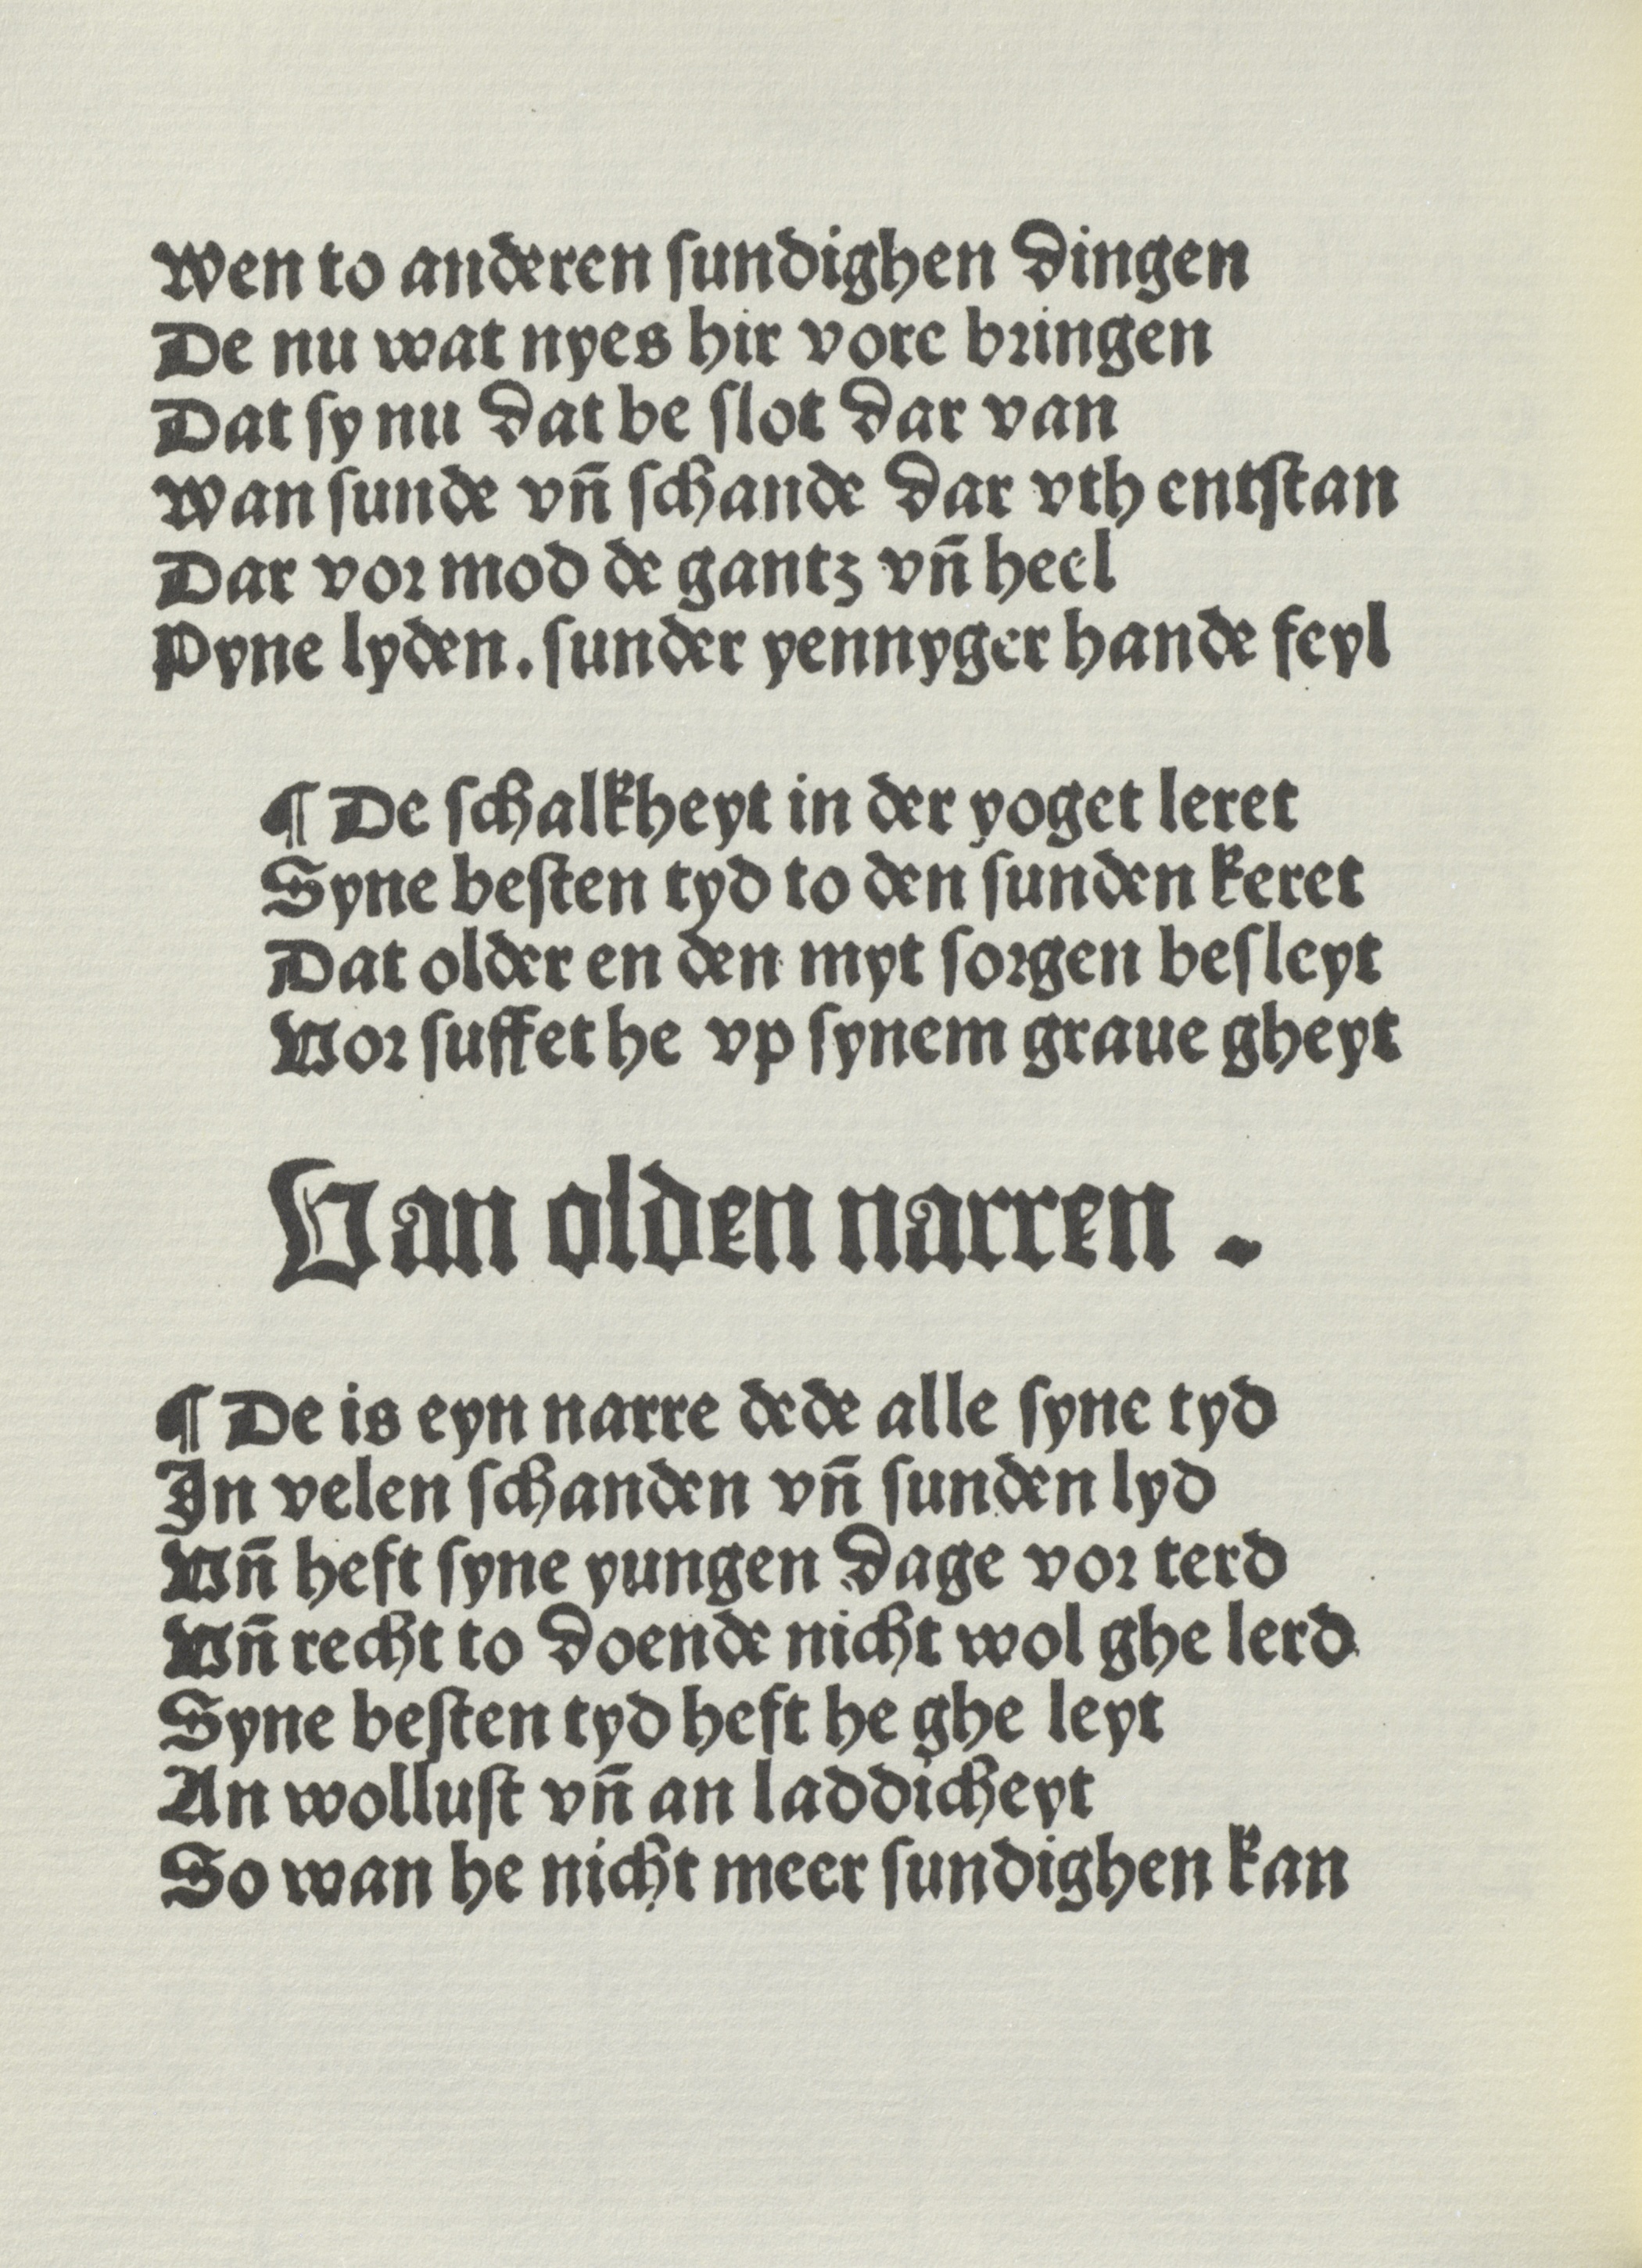 Wen to anderen sundighen dingen
De nu wat nyes hir vore bringen
Dat sy nu dat be slot dar van
Wan sunde vn̄ schande dar vth entstan
Dar vor mod de gantz vn̄ heel
Pyne lyden. sunder yennyger hande feyl
¶ De schalkheyt in der yoget leret
Syne besten tyd to den sunden keret
Dat older en den myt sorgen besleyt
Vor suffet he vp synem graue gheyt
Van olden narren .
¶ De is eyn narre dede alle syne tyd
In velen schanden vn̄ sunden lyd
Vn̄ heft syne yungen dage vor terd
Vn̄ recht to doende nicht wol ghe lerd
Syne besten tyd heft he ghe leyt
An wollust vn̄ an laddicheyt
So wan he nicht meer sundighen kan